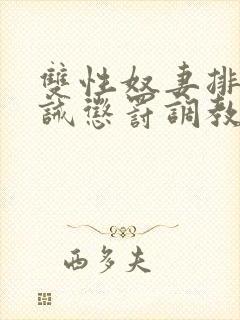 雙性奴妻排
誡懲罰調教
西多夫